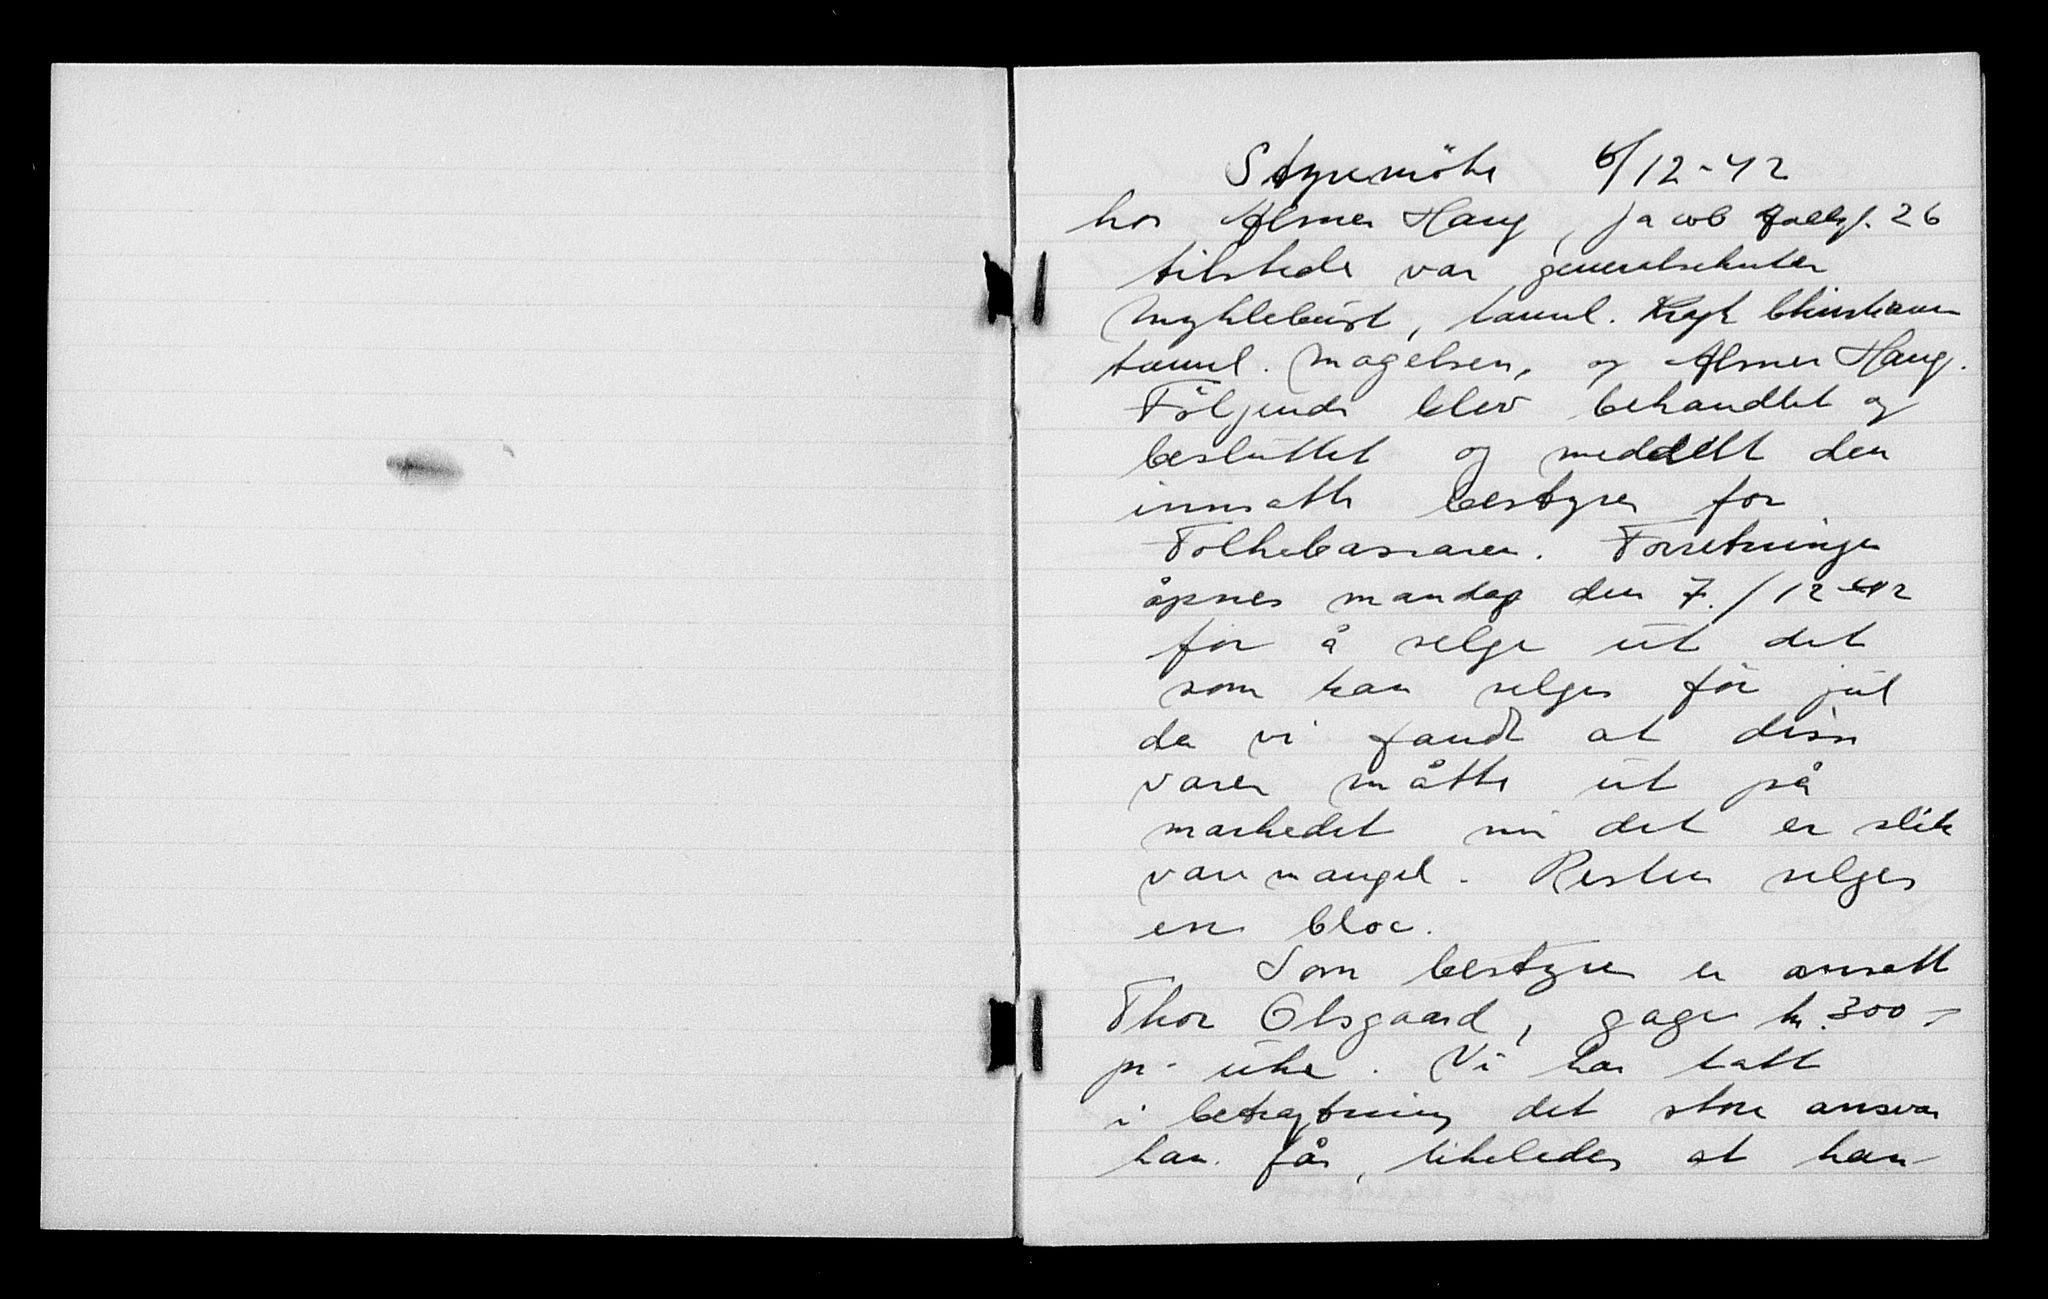 Styremöte 6/12-42
hos Asmer Haug, Jacob Aallsgt. 26
tilstede var generalsekretær
Myklebust, tannl. Kreft Christiansen
tannl. Magelsen, og Asmer Haug.
Följende blev behandlet og
besluttet og meddelt den
innsatte bestyrer for
Folkebasaren. Forretningen
åpnes mandag den 7./12-42
for å selge ut det
som kan selges för jul
da vi fandt at disse
varer måtte ut på
markedet nu det er slik
varemangel. Resten selges
en bloc.
Som bestyrer er ansatt
Thor Olsgaard, gage kr. 300-
pr. uke. Vi har tatt
i betragtning det store ansvar
han får, likeledes at han